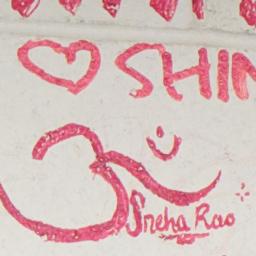 SHIN
Sneha Rao